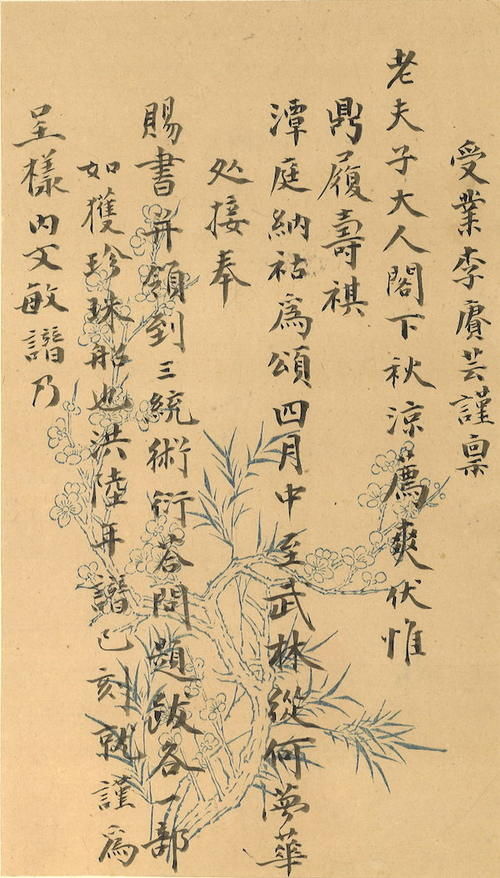 受業李賡芸謹禀
老夫子大人閣下秋涼薦爽伏惟
鼎履壽祺
潭庭納祜爲頌四月中至武林從何夢華
处接奉
賜書并領到三統術衍荅問題跋各一部
如獲珍珠船也洪陸年譜已刻就謹爲
呈樣内文敏譜乃